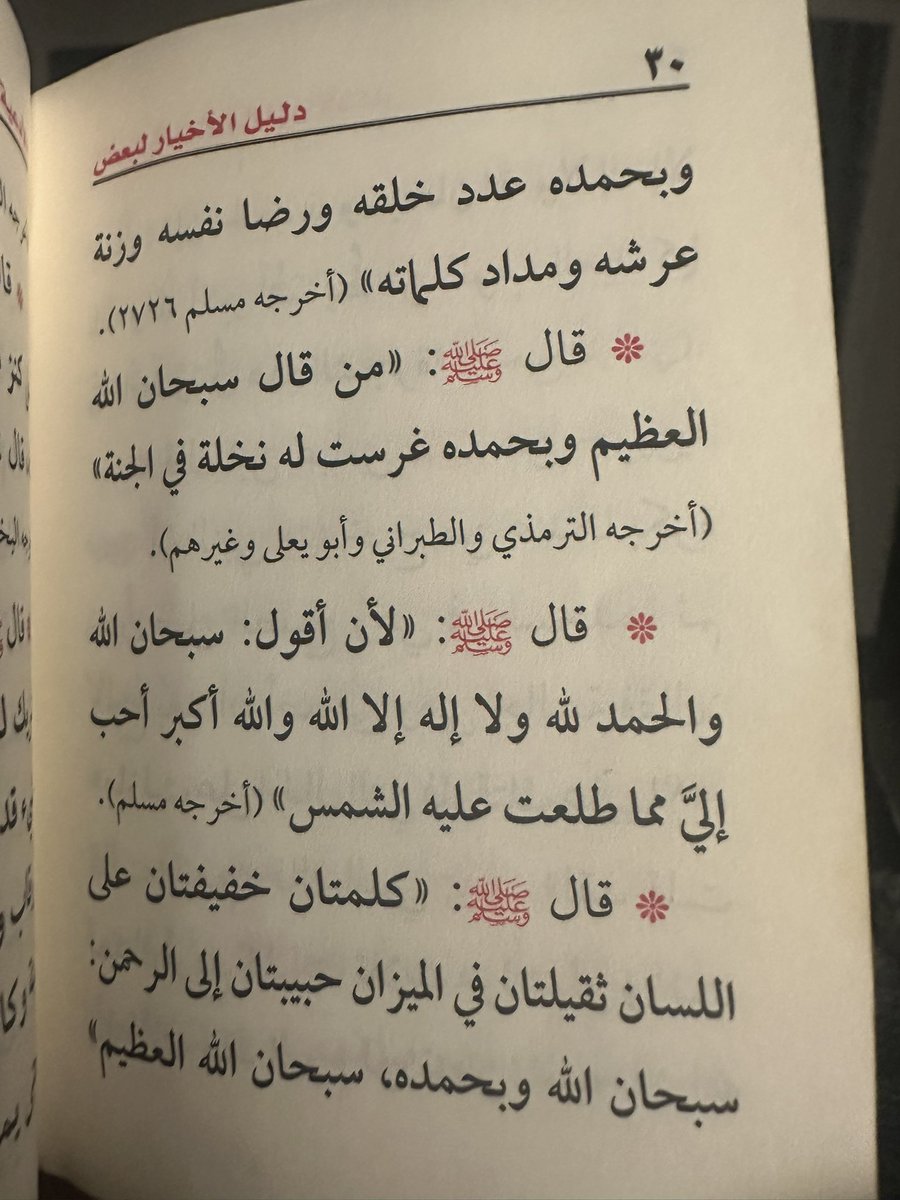 ٣٠
دليل الأخيار لبعض
وبحمده عدد خلقه ورضا نفسه وزنة
عرشه ومداد كلماته» (أخرجه مسلم ٢٧٢٦).
❊ قال ﷺ: «من قال سبحان الله
العظيم وبحمده غرست له نخلة في الجنة»
(أخرجه الترمذي والطبراني وأبو يعلى وغيرهم).
❊ قال ﷺ: «لأن أقول: سبحان الله
والحمد لله ولا إله إلا الله والله أكبر أحب
إليَّ مما طلعت عليه الشمس» (أخرجه مسلم).
❊ قال ﷺ: «كلمتان خفيفتان على
اللسان ثقيلتان في الميزان حبيبتان إلى الرحمن:
سبحان الله وبحمده، سبحان الله العظيم"